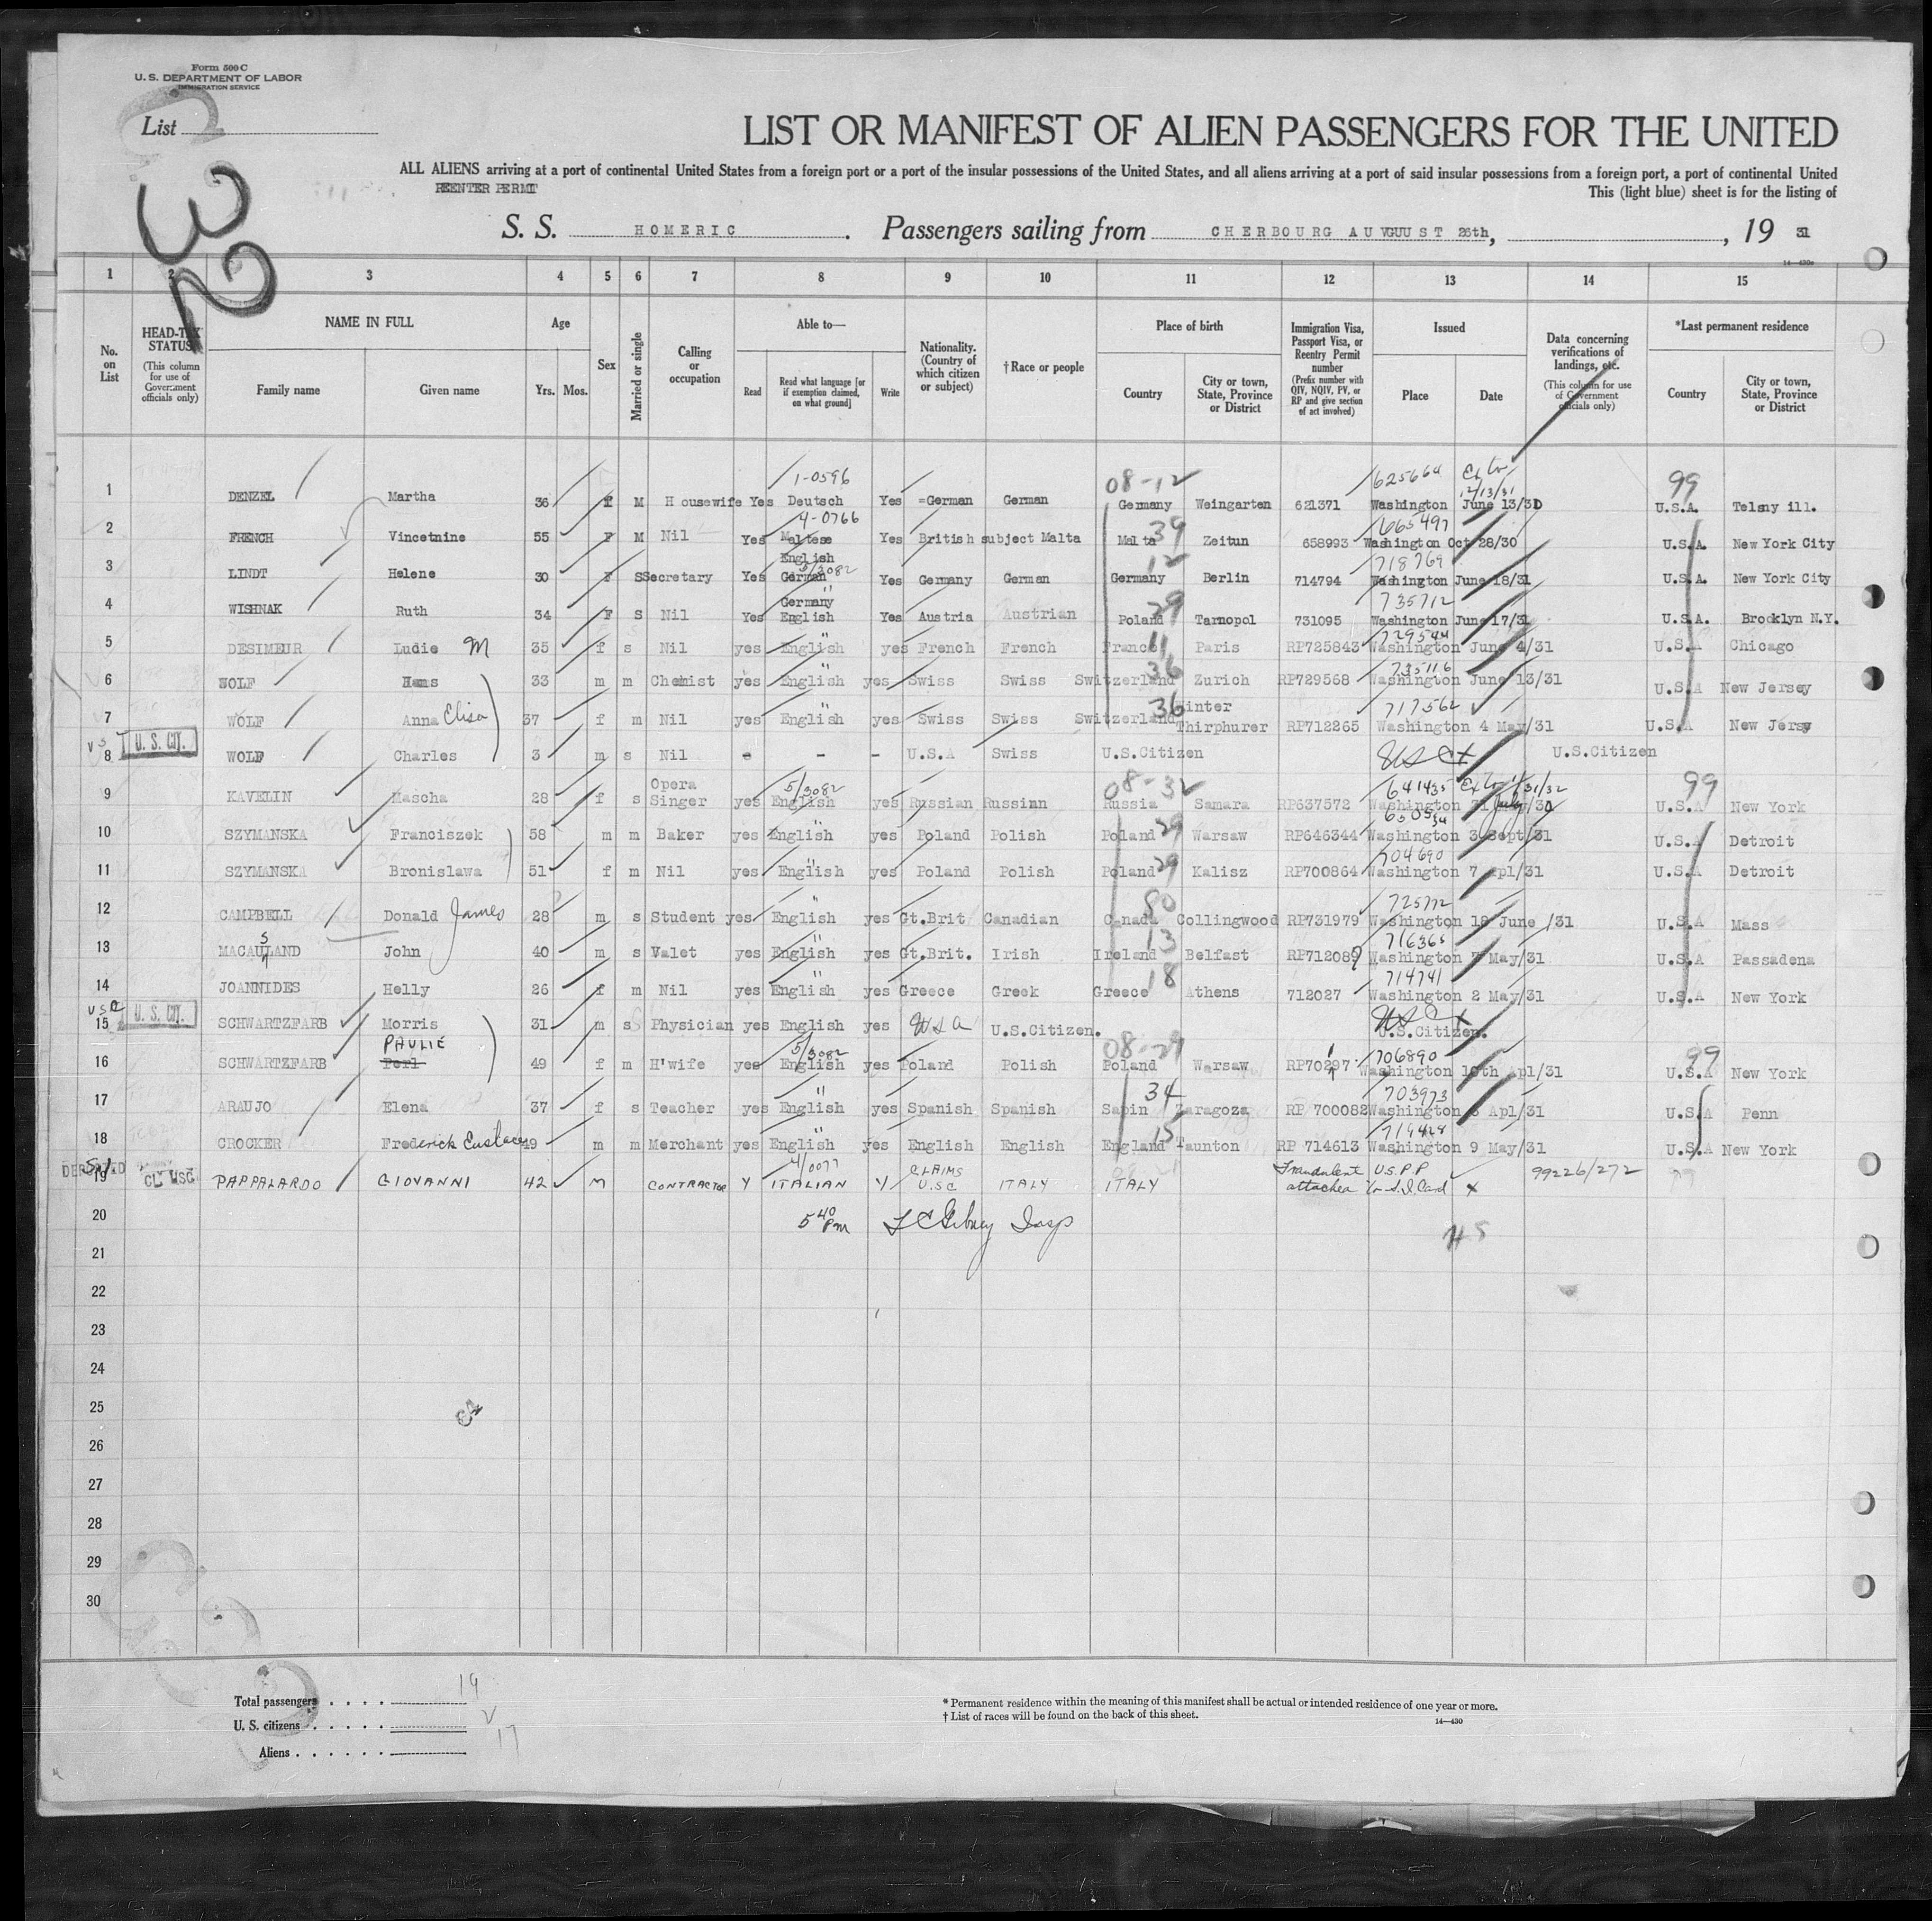 Form 500 C
U. S. DEPARTMENT OF LABOR
IMMIGRATION SERVICE
List
23
LIST OR MANIFEST OF ALIEN PASSENGERS FOR THE UNITED
ALL ALIENS arriving at a port of continental United States from a foreign port or a port of the insular possessions of the United States, and all aliens arriving at a port of said insular possessions from a foreign port, a port of continental United
REENTER PERMIT
This (light blue) sheet is for the listing of
S. S. HOMERIC. Passengers sailing from CHERBOURG AUVGUUST 26th, , 19 31
14—430c
1 2 3 4 5 6 7 8 9 10 11 12 13 14 15
No. on List
HEAD-TAX STATUS (This column for use of Government officials only)
NAME IN FULL Family name Given name
Age Yrs. Mos.
Sex
Married or single
Calling or occupation
Able to— Read Read what language [or if exemption claimed, on what ground] Write
Nationality. (Country of which citizen or subject)
†Race or people
Place of birth Country City or town, State, Province or District
Immigration Visa, Passport Visa, or Reentry Permit number (Prefix number with QIV, NQIV, PV, or RP and give section of act involved)
Issued Place Date
Data concerning verifications of landings, etc. (This column for use of Government officials only)
*Last permanent residence Country City or town, State, Province or District
1-0596 08-12 625664 12/13/31 99
1 DENZEL Martha 36 f M Housewife Yes Deutsch Yes =German German Germany Weingarten 621371 Washington June 13/3D U.S.A. Telmy ill.
4-0766 39 665497
2 FRENCH Vincetnine 55 F M Nil Yes Maltese Yes British subject Malta Malta Zeitun 658993 Washington Oct 28/30 U.S.A. New York City
English 5/3082 12 718769
3 LINDT Helene 30 F S Secretary Yes German Yes Germany German Germany Berlin 714794 Washington June 18/31 U.S.A. New York City
Germany 29 735712
4 WISHNAK Ruth 34 F S Nil Yes English Yes Austria Austrian Poland Tarnopol 731095 Washington June 17/31 U.S.A. Brooklyn N.Y.
" 11 729544
5 DESIMEUR Ludie M 35 f s Nil yes English yes French French France Paris RP725843 Washington June 4/31 U.S.A Chicago
" 36 735116
6 WOLF Hans 33 m m Chemist yes English yes Swiss Swiss Switzerland Zurich RP729568 Washington June 13/31 U.S.A New Jersey
" 36 717562
7 WOLF Anna Elisa 37 f m Nil yes English yes Swiss Swiss Switzerland inter Thirphurer RP712265 Washington 4 May/31 U.S.A New Jersy
VS U. S. CIT.
8 WOLF Charles 3 m s Nil - - - U.S.A Swiss U.S.Citizen US Ct U.S.Citizen
5/3082 08-32 641435 Ex to 1/31/32 99
9 KAVELIN Mascha 28 f s Opera Singer yes English yes Russian Russian Russia Samara RP637572 Washington 31 July/30 U.S.A New York
" 29
10 SZYMANSKA Franciszek 58 m m Baker yes English yes Poland Polish Poland Warsaw RP646344 Washington 3 Sept/31 U.S.A Detroit
" 29 704690
11 SZYMANSKA Bronislawa 51 f m Nil yes English yes Poland Polish Poland Kalisz RP700864 Washington 7 apl/31 U.S.A Detroit
" 80 725772
12 CAMPBELL Donald James 28 m s Student yes English yes Gt.Brit Canadian Canada Collingwood RP731979 Washington 18 June /31 U.S.A Mass
" 13 716365
13 MACAUSLAND John 40 m s Valet yes English yes Gt.Brit. Irish Ireland Belfast RP712089 Washington 7 May/31 U.S.A Passadena
" 18 714741
14 JOANNIDES Helly 26 f m Nil yes English yes Greece Greek Greece Athens 712027 Washington 2 May/31 U.S.A New York
USA U. S. CIT.
15 SCHWARTZFARB Morris 31 m s Physician yes English yes USA U.S.Citizen. US Ct U.S.Citizen.
PAULIE 5/3082 08-29 706890 99
16 SCHWARTZFARB Perl 49 f m H'wife yes English yes Poland Polish Poland Warsaw RP702197 Washington 10th apl/31 U.S.A New York
" 34 703973
17 ARAUJO Elena 37 f s Teacher yes English yes Spanish Spanish Sapin Zaragoza RP 700082 Washington 8 Apl/31 U.S.A Penn
" 15 719428
18 CROCKER Frederick Eustace 49 m m Merchant yes English yes English English England Taunton RP 714613 Washington 9 May/31 U.S.A New York
DEPORTED S.I. CL USC 4/0077
19 PAPPALARDO GIOVANNI 42 M CONTRACTOR Y ITALIAN Y CLAIMS U.S.C ITALY ITALY Fraudulent U.S.P.P attached to S.I. Card x 99226/272 99
20 5 40 Pm Insp
HS
21
22
23
24
25
26
27
28
29
30
Total passengers . . . . 19
U. S. citizens . . . . . 2
Aliens . . . . . . 17
* Permanent residence within the meaning of this manifest shall be actual or intended residence of one year or more.
† List of races will be found on the back of this sheet.
14—430